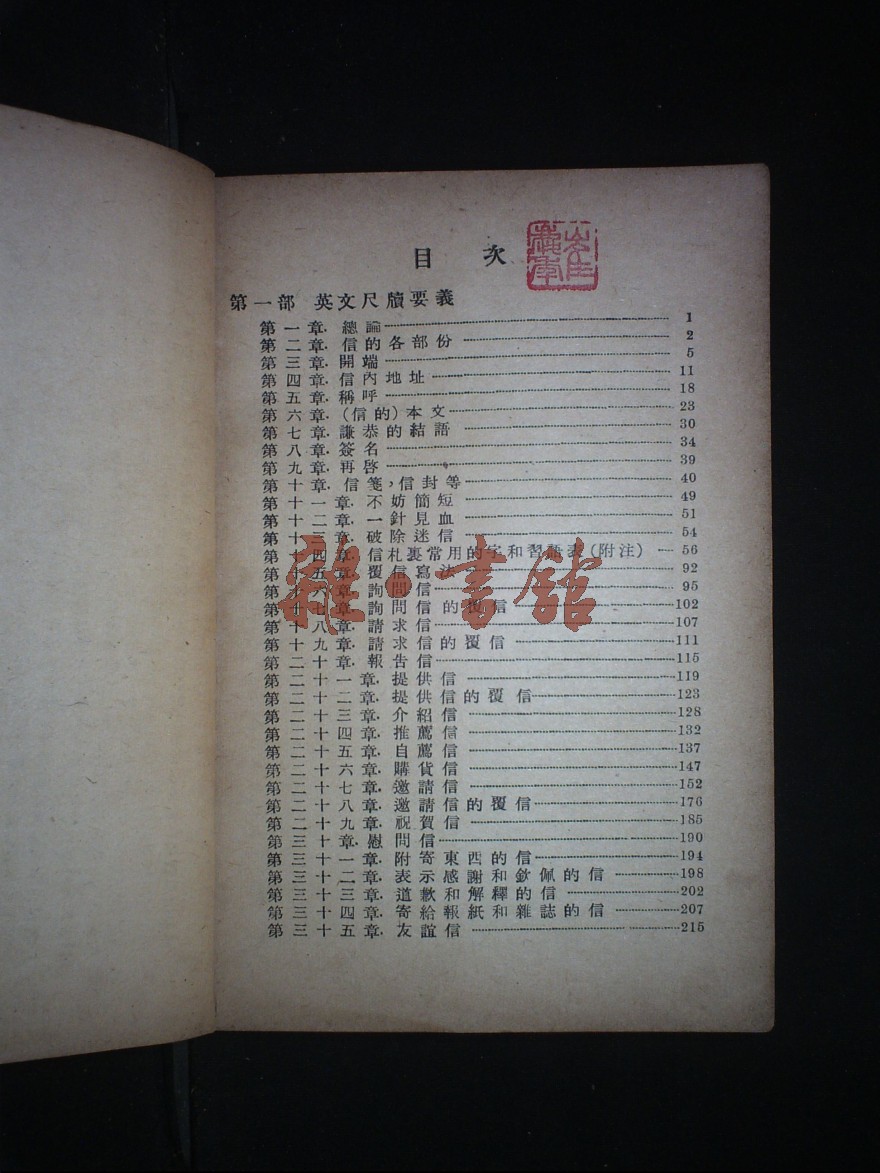 目 次
第一部 英文尺牘要義
第一章. 總論 1
第二章. 信的各部份 2
第三章. 開端 5
第四章. 信內地址 11
第五章. 稱呼 18
第六章. (信的)本文 23
第七章. 謙恭的結語 30
第八章. 簽名 34
第九章. 再啓 39
第十章. 信箋,信封等 40
第十一章. 不妨簡短 49
第十二章. 一針見血 51
第十三章. 破除迷信 54
第十四章. 信札裏常用的字和習語表(附注) 56
第十五章. 覆信寫法 92
第十六章. 詢問信 95
第十七章. 詢問信的覆信 102
第十八章. 請求信 107
第十九章. 請求信的覆信 111
第二十章. 報告信 115
第二十一章. 提供信 119
第二十二章. 提供信的覆信 123
第二十三章. 介紹信 128
第二十四章. 推薦信 132
第二十五章. 自薦信 137
第二十六章. 購貨信 147
第二十七章. 邀請信 152
第二十八章. 邀請信的覆信 176
第二十九章. 祝賀信 185
第三十章. 慰問信 190
第三十一章. 附寄東西的信 194
第三十二章. 表示感謝和欽佩的信 198
第三十三章. 道歉和解釋的信 202
第三十四章. 寄給報紙和雜誌的信 207
第三十五章. 友誼信 215
雜·書館